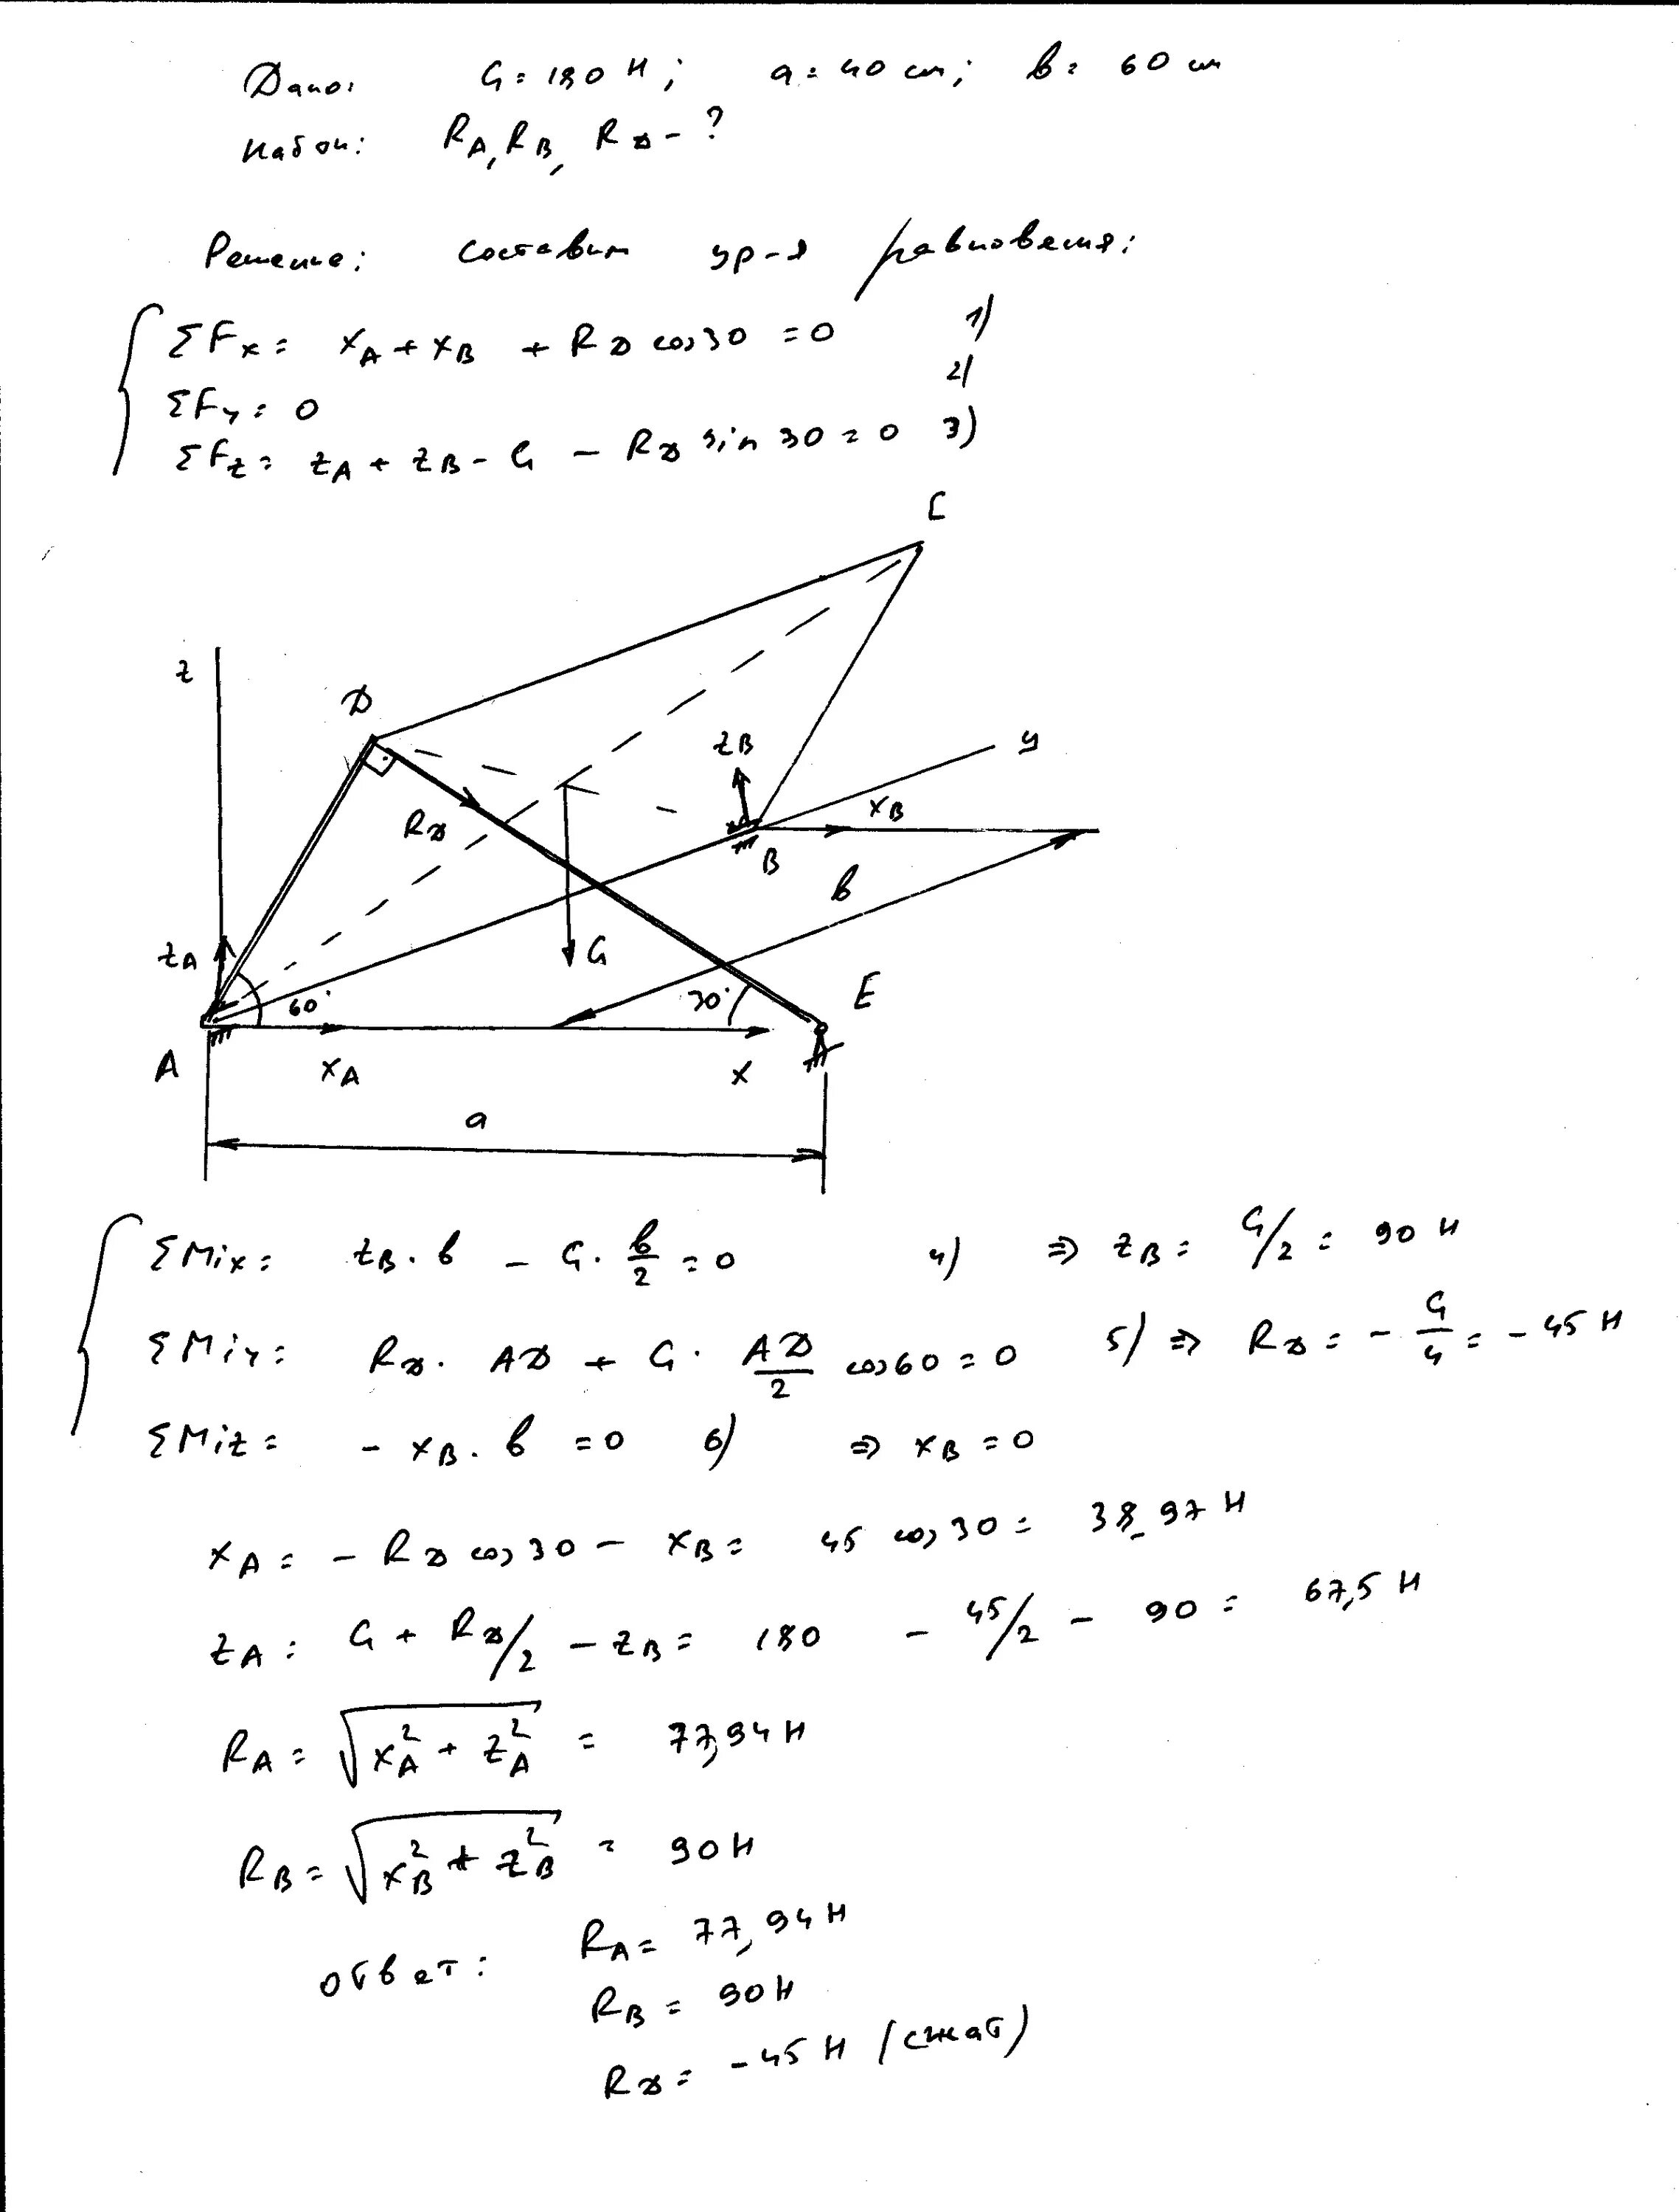 Дано: G = 180 Н; a = 40 см; b = 60 см
Найти: R_A, R_B, R_D - ?
Решение: составим ур-я равновесия:
ΣF_x = x_A + x_B + R_D cos 30 = 0 1)
ΣF_y = 0 2)
ΣF_z = z_A + z_B - G - R_D sin 30 = 0 3)
C
z
D
z_B
y
R_D
x_B
B
b
z_A
G
60°
30°
E
A
x_A
x
a
ΣM_ix = z_B · b - G · b/2 = 0 4) ⇒ z_B = G/2 = 90 Н
ΣM_iy = R_D · AD + G · AD/2 cos 60 = 0 5) ⇒ R_D = - G/4 = - 45 Н
ΣM_iz = - x_B · b = 0 6) ⇒ x_B = 0
x_A = - R_D cos 30 - x_B = 45 cos 30 = 38,97 Н
z_A = G + R_D/2 - z_B = 180 - 45/2 - 90 = 67,5 Н
R_A = √(x_A² + z_A²) = 77,94 Н
R_B = √(x_B² + z_B²) = 90 Н
Ответ: R_A = 77,94 Н
R_B = 90 Н
R_D = - 45 Н (сжат)